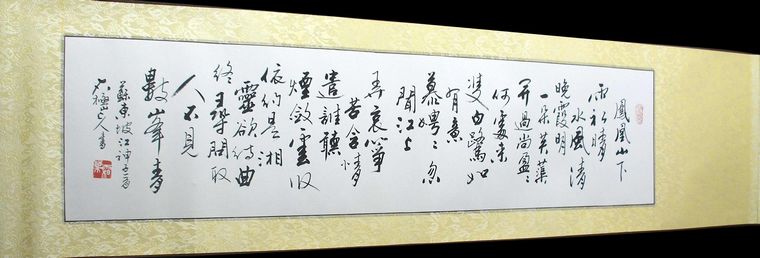 鳳凰山下
雨初晴
水風清
晚霞明
一朵芙蕖
開過尚盈〻
何處來
雙白鷺如
有意
慕娉〻忽
聞江上
弄哀箏
苦含情
遣誰聽
煙斂雲收
依約是湘
靈欲待曲
終尋問取
人不見
數峯青
蘇東坡江神子
山人書